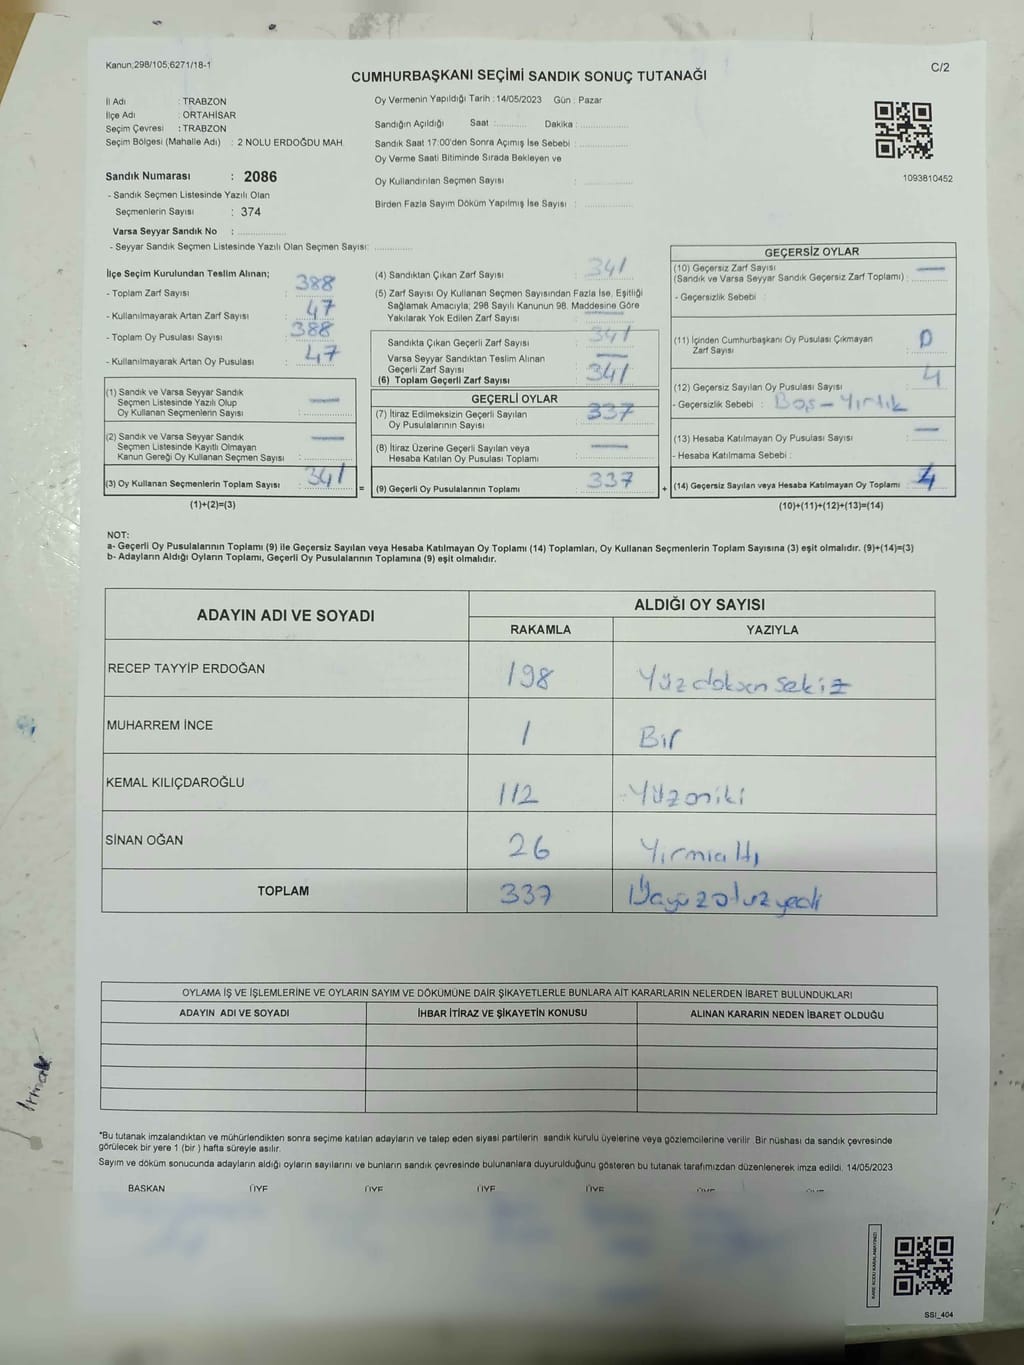 Kanun;298/105;6271/18-1
C/2
CUMHURBAŞKANI SEÇİMİ SANDIK SONUÇ TUTANAĞI
İl Adı : TRABZON
İlçe Adı : ORTAHİSAR
Seçim Çevresi : TRABZON
Seçim Bölgesi (Mahalle Adı) : 2 NOLU ERDOĞDU MAH.
Sandık Numarası : 2086
- Sandık Seçmen Listesinde Yazılı Olan
Seçmenlerin Sayısı : 374
Varsa Seyyar Sandık No : ..............
- Seyyar Sandık Seçmen Listesinde Yazılı Olan Seçmen Sayısı: ............
Oy Vermenin Yapıldığı Tarih : 14/05/2023 Gün : Pazar
Sandığın Açıldığı Saat :.......... Dakika : ..............
Sandık Saat 17:00'den Sonra Açımış İse Sebebi : ..............
Oy Verme Saati Bitiminde Sırada Bekleyen ve
Oy Kullandırılan Seçmen Sayısı : ..............
Birden Fazla Sayım Döküm Yapılmış İse Sayısı : ..............
1093810452
İlçe Seçim Kurulundan Teslim Alınan;
- Toplam Zarf Sayısı : 388
- Kullanılmayarak Artan Zarf Sayısı : 47
- Toplam Oy Pusulası Sayısı : 388
- Kullanılmayarak Artan Oy Pusulası : 47
(1) Sandık ve Varsa Seyyar Sandık
Seçmen Listesinde Yazılı Olup
Oy Kullanan Seçmenlerin Sayısı : —
(2) Sandık ve Varsa Seyyar Sandık
Seçmen Listesinde Kayıtlı Olmayan
Kanun Gereği Oy Kullanan Seçmen Sayısı : —
(3) Oy Kullanan Seçmenlerin Toplam Sayısı : 341
(1)+(2)=(3)
(4) Sandıktan Çıkan Zarf Sayısı : 341
(5) Zarf Sayısı Oy Kullanan Seçmen Sayısından Fazla İse, Eşitliği
Sağlamak Amacıyla; 298 Sayılı Kanunun 98. Maddesine Göre
Yakılarak Yok Edilen Zarf Sayısı : —
Sandıkta Çıkan Geçerli Zarf Sayısı : 341
Varsa Seyyar Sandıktan Teslim Alınan
Geçerli Zarf Sayısı : —
(6) Toplam Geçerli Zarf Sayısı : 341
GEÇERLİ OYLAR
(7) İtiraz Edilmeksizin Geçerli Sayılan
Oy Pusulalarının Sayısı : 337
(8) İtiraz Üzerine Geçerli Sayılan veya
Hesaba Katılan Oy Pusulası Toplamı : —
= (9) Geçerli Oy Pusulalarının Toplamı : 337
GEÇERSİZ OYLAR
(10) Geçersiz Zarf Sayısı
(Sandık ve Varsa Seyyar Sandık Geçersiz Zarf Toplamı) : —
- Geçersizlik Sebebi :
(11) İçinden Cumhurbaşkanı Oy Pusulası Çıkmayan
Zarf Sayısı : 0
(12) Geçersiz Sayılan Oy Pusulası Sayısı : 4
- Geçersizlik Sebebi : Boş - Yırtık
(13) Hesaba Katılmayan Oy Pusulası Sayısı : —
- Hesaba Katılmama Sebebi :
+ (14) Geçersiz Sayılan veya Hesaba Katılmayan Oy Toplamı : 4
(10)+(11)+(12)+(13)=(14)
NOT:
a- Geçerli Oy Pusulalarının Toplamı (9) ile Geçersiz Sayılan veya Hesaba Katılmayan Oy Toplamı (14) Toplamları, Oy Kullanan Seçmenlerin Toplam Sayısına (3) eşit olmalıdır. (9)+(14)=(3)
b- Adayların Aldığı Oyların Toplamı, Geçerli Oy Pusulalarının Toplamına (9) eşit olmalıdır.
ADAYIN ADI VE SOYADI ALDIĞI OY SAYISI
RAKAMLA YAZIYLA
RECEP TAYYİP ERDOĞAN 198 Yüz doksan sekiz
MUHARREM İNCE 1 Bir
KEMAL KILIÇDAROĞLU 112 Yüzoniki
SİNAN OĞAN 26 Yirmialtı
TOPLAM 337 Üçyüzotuzyedi
OYLAMA İŞ VE İŞLEMLERİNE VE OYLARIN SAYIM VE DÖKÜMÜNE DAİR ŞİKAYETLERLE BUNLARA AİT KARARLARIN NELERDEN İBARET BULUNDUKLARI
ADAYIN ADI VE SOYADI İHBAR İTİRAZ VE ŞİKAYETİN KONUSU ALINAN KARARIN NEDEN İBARET OLDUĞU
*Bu tutanak imzalandıktan ve mühürlendikten sonra seçime katılan adayların ve talep eden siyasi partilerin sandık kurulu üyelerine veya gözlemcilerine verilir. Bir nüshası da sandık çevresinde
görülecek bir yere 1 (bir ) hafta süreyle asılır.
Sayım ve döküm sonucunda adayların aldığı oyların sayılarını ve bunların sandık çevresinde bulunanlara duyurulduğunu gösteren bu tutanak tarafımızdan düzenlenerek imza edildi. 14/05/2023
BAŞKAN ÜYE ÜYE ÜYE ÜYE ÜYE ÜYE
SSI_404